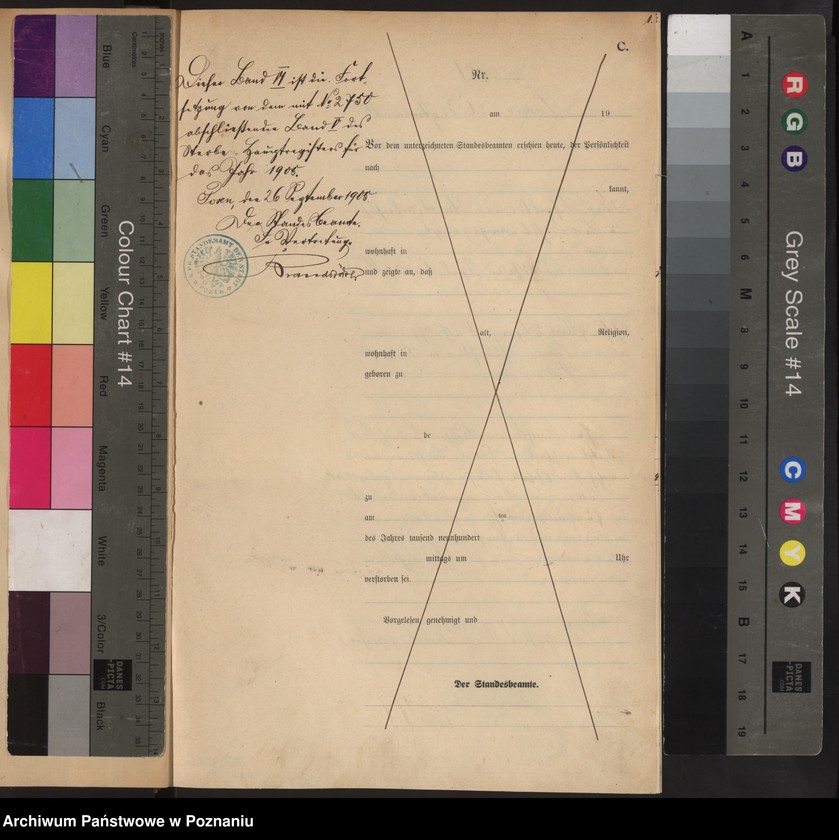 1.
C.
Dieser Band VI ist die Fort-
setzung von dem mit No 2750
abschließenden Band V des
Sterbe-Hauptregisters für
das Jahr 1905.
Posen, den 26 September 1905
Der Standesbeamte.
In Vertretung.
Nr.
am 19
Vor dem unterzeichneten Standesbeamten erschien heute, der Persönlichkeit
nach
kannt,
wohnhaft in
und zeigte an, daß
alt, Religion,
wohnhaft in
geboren zu
de
zu
am
des Jahres tausend neunhundert
mittags um Uhr
verstorben sei.
Vorgelesen, genehmigt und
Der Standesbeamte.
Colour Chart #14
Blue
Cyan
Green
Yellow
Red
Magenta
White
3/Color
Black
Centimetres
Inches
DANES
PICTA
Grey Scale #14
R
G
B
C
M
Y
K
A
1
2
3
4
5
6
M
8
9
10
11
12
13
14
15
B
17
18
19
DANES
PICTA
Archiwum Państwowe w Poznaniu